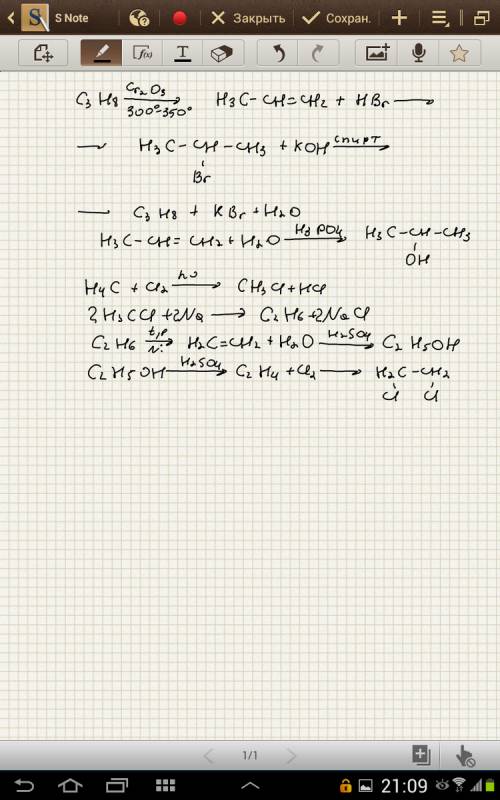 S Note
Закрыть
Сохран.
f(x)
T
C3H8 Cr2O3 300°-350° → H3C-CH=CH2 + HBr →
→ H3C-CH-CH3 + KOH спирт →
Br
→ C3H8 + KBr + H2O
H3C-CH=CH2 + H2O H3PO4 → H3C-CH-CH3
OH
H4C + Cl2 hν → CH3Cl + HCl
2H3CCl + 2Na → C2H6 + 2NaCl
C2H6 t,p Ni → H2C=CH2 + H2O H2SO4 → C2H5OH
C2H5OH H2SO4 → C2H4 + Cl2 → H2C-CH2
Cl Cl
1/1
21:09